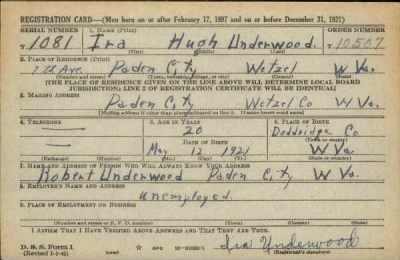 REGISTRATION CARD—(Men born on or after February 17, 1897 and on or before December 31, 1921)
SERIAL NUMBER 1. NAME (Print) ORDER NUMBER
T 1081 Ira Hugh Underwood. T 10,507
(First) (Middle) (Last)
2. PLACE OF RESIDENCE (Print)
Ave. Paden City Wetzel W Va.
(Number and street) (Town, township, village, or city) (County) (State)
[THE PLACE OF RESIDENCE GIVEN ON THE LINE ABOVE WILL DETERMINE LOCAL BOARD
JURISDICTION; LINE 2 OF REGISTRATION CERTIFICATE WILL BE IDENTICAL]
3. MAILING ADDRESS
Paden City Wetzel Co W Va.
[Mailing address if other than place indicated on line 2. If same insert word same]
4. TELEPHONE 5. AGE IN YEARS 6. PLACE OF BIRTH
20 Doddridge Co
DATE OF BIRTH (Town or county)
May 12 1921 W Va
(Exchange) (Number) (Mo.) (Day) (Yr.) (State or country)
7. NAME AND ADDRESS OF PERSON WHO WILL ALWAYS KNOW YOUR ADDRESS
Robert Underwood Paden City W Va
8. EMPLOYER'S NAME AND ADDRESS
Unemployed.
9. PLACE OF EMPLOYMENT OR BUSINESS
(Number and street or R. F. D. number) (Town) (County) (State)
I AFFIRM THAT I HAVE VERIFIED ABOVE ANSWERS AND THAT THEY ARE TRUE.
D. S. S. Form 1
(Revised 1-1-42) Ira Underwood
(Registrant's signature)